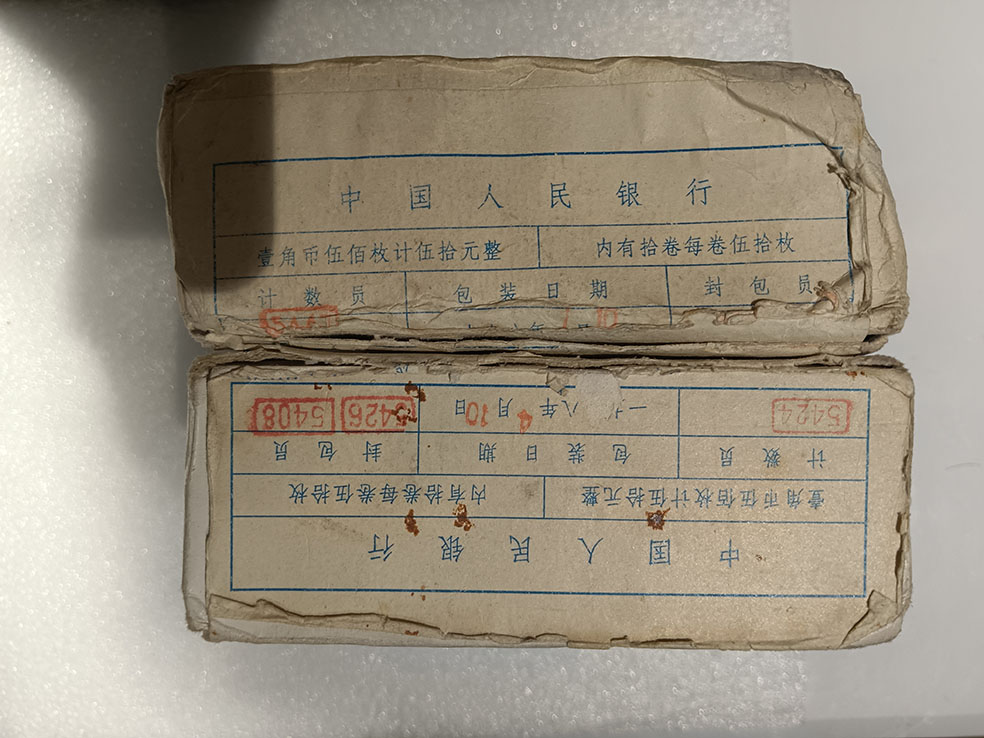 中国人民银行
壹角币伍佰枚计伍拾元整 内有拾卷每卷伍拾枚
计数员 包装日期 封包员
年 10
中国人民银行
壹角币伍佰枚计伍拾元整 内有拾卷每卷伍拾枚
计数员 包装日期 封包员
5424 一九八 年4月10日 5426 5408